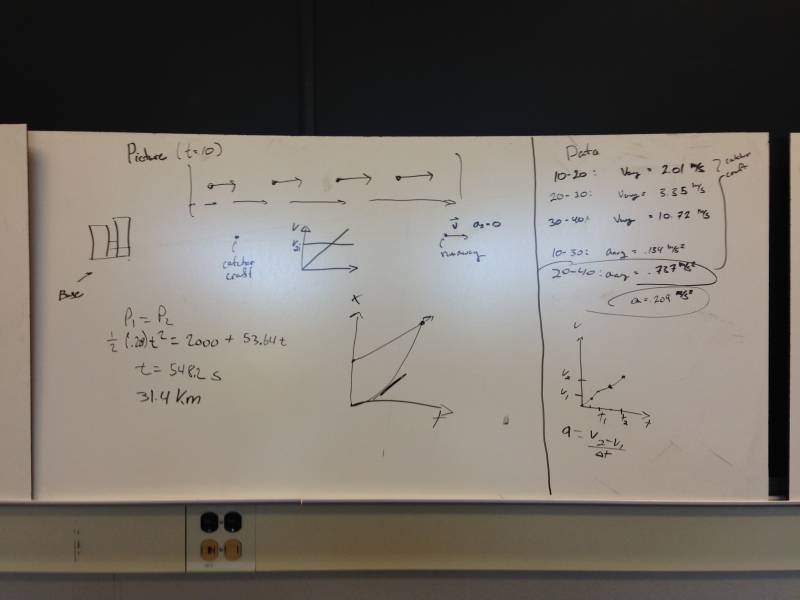 Picture (t=10)
v⃗ a=0
runaway
catcher
craft
Base
V
X
t
P₁ = P₂
½(.20)t² = 2000 + 53.64t
t = 548.2 s
31.4 Km
Data
10-20: Vavg = 2.01 m/s
20-30: Vavg = 3.35 m/s
30-40: Vavg = 10.72 m/s
catcher
craft
10-30: aavg = .134 m/s²
20-40: aavg = .737 m/s²
a = .209 m/s²
V
V₂
V₁
T₁ t₂ t
a = V₂-V₁
Δt